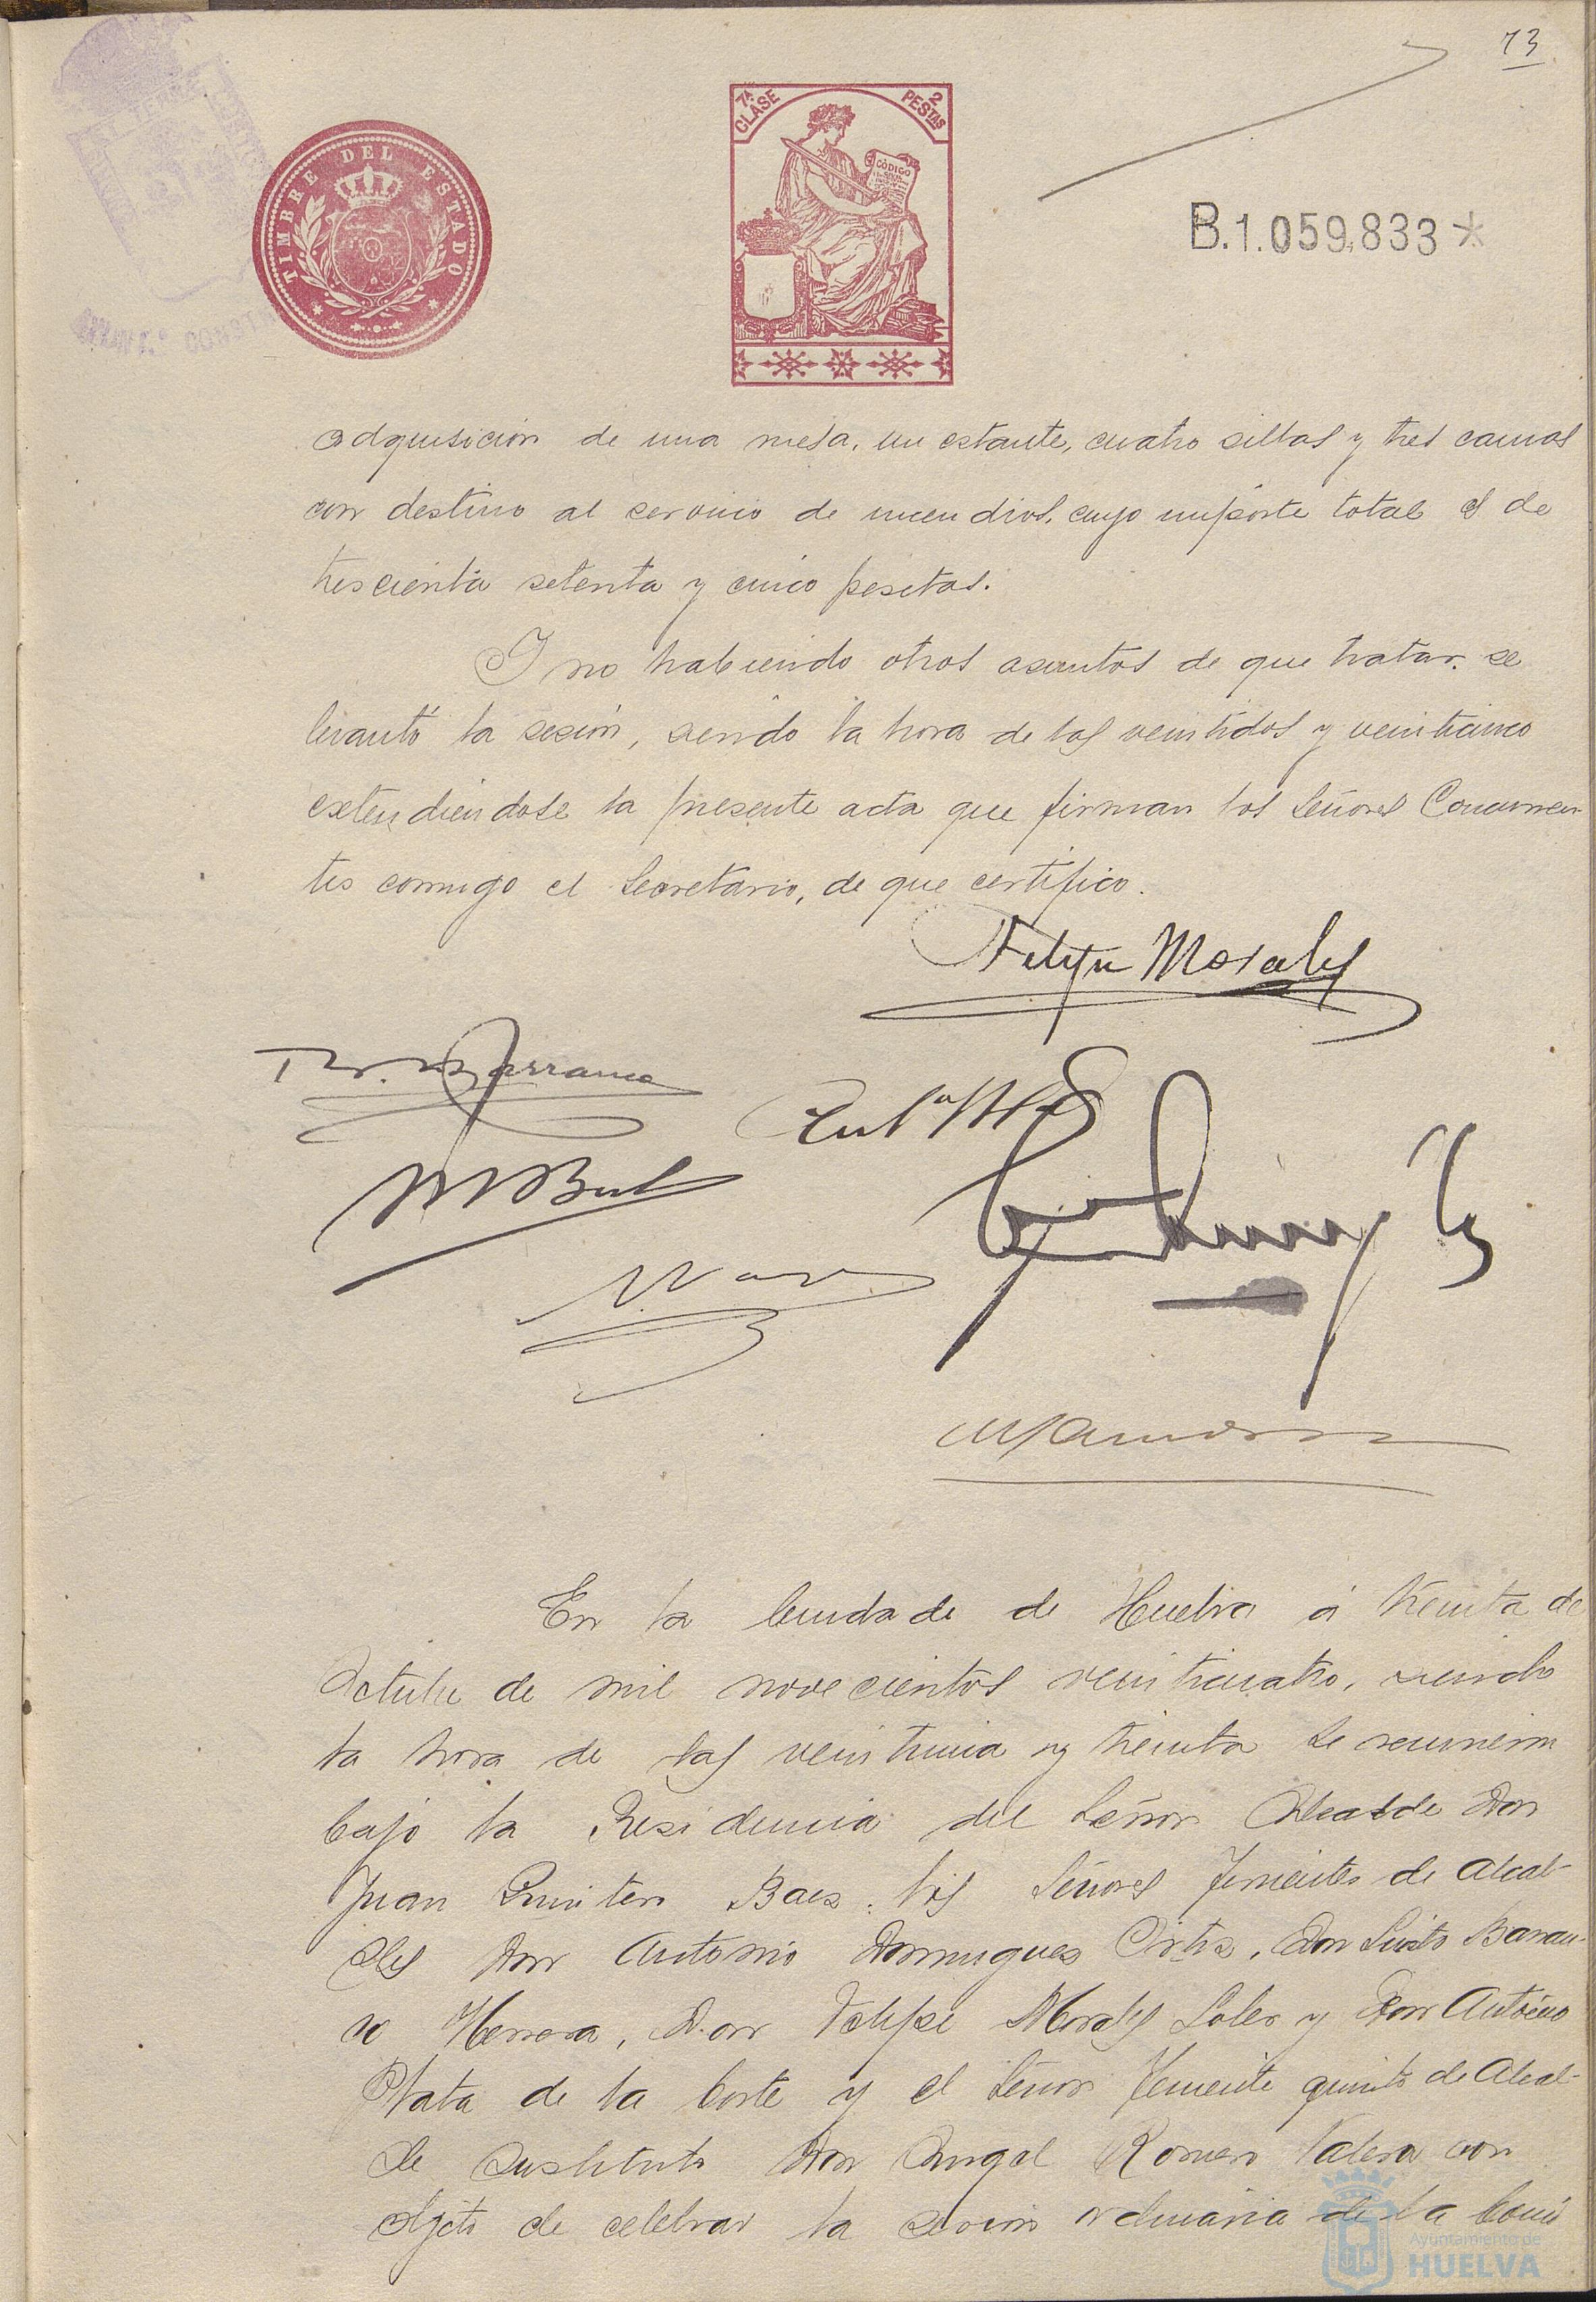 73
TIMBRE DEL ESTADO
7ª CLASE
2 PESTAS
CÓDIGO
B.1.059,833*
adquisición de una mesa, un estante, cuatro sillas y tres camas
con destino al servicio de incendios, cuyo importe total es de
trescienta setenta y cinco pesetas.
Y no habiendo otros asuntos de que tratar, se
levantó la sesión, siendo la hora de las veintidos y veinticinco
extendiéndose la presente acta que firman los Señores Concurren
tes conmigo el Secretario, de que certifico.
Felipe Morales
Barranco
En la Ciudad de de Huelva á treinta de
Octubre de mil novecientos veinticuatro, siendo
la hora de las veintiuna y treinta se reunieron
bajo la Presidencia del Señor Alcalde Don
Juan Quintero Baez, los Señores Tenientes de Alcal-
des Don Antonio Dominguez Ortiz, Don Sixto Barran-
co Herrera, Don Felipe Morales Soler y Don Antonio
Plata de la Corte y el Señor Teniente quinto de Alcal-
de sustituto Don Angel Romero Valera con
objeto de celebrar la sesión ordinaria de la Comi
Ayuntamiento de
HUELVA